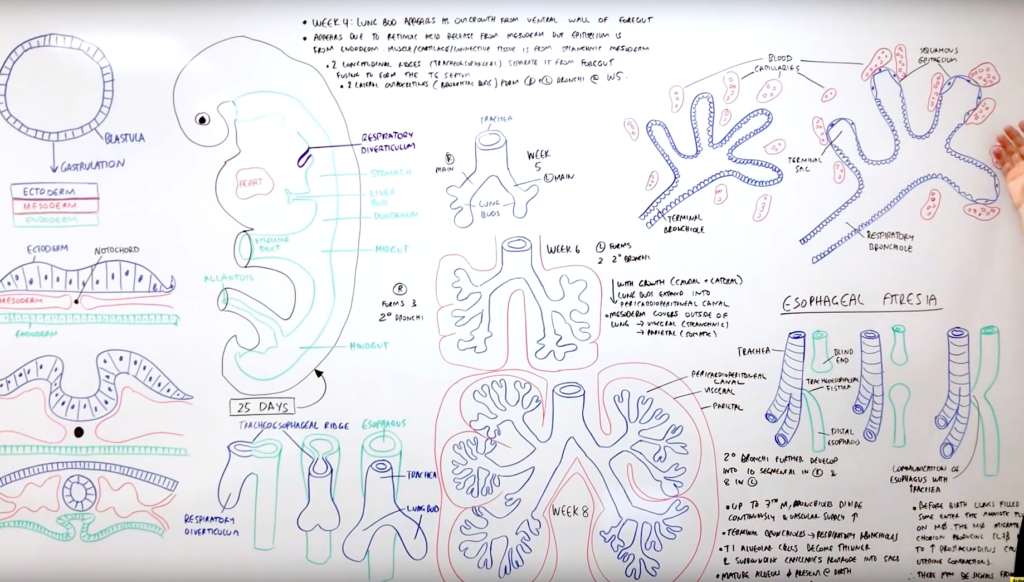 • WEEK 4: LUNG BUD APPEARS AS OUTGROWTH FROM VENTRAL WALL OF FOREGUT
• APPEARS DUE TO RETINOIC ACID RELEASE FROM MESODERM BUT EPITHELIUM IS
FROM ENDODERM. MUSCLE/CARTILAGE/CONNECTIVE TISSUE IS FROM SPLANCHNIC MESODERM
• 2 LONGITUDINAL RIDGES (TRACHEOESOPHAGEAL) SEPARATE IT FROM FOREGUT
FUSING TO FORM THE TE SEPTUM
• 2 LATERAL OUTPOCKETINGS (BRONCHIAL BUDS) FORM R + L BRONCHI @ W5.
BLASTULA
GASTRULATION
ECTODERM
MESODERM
ENDODERM
ECTODERM
NOTOCHORD
MESODERM
ENDODERM
HEART
RESPIRATORY
DIVERTICULUM
STOMACH
LIVER
BUD
DUODENUM
VITELLINE
DUCT
MIDGUT
ALLANTOIS
HINDGUT
25 DAYS
TRACHEOESOPHAGEAL RIDGE
ESOPHAGUS
TRACHEA
LUNG BUD
RESPIRATORY
DIVERTICULUM
TRACHEA
R
MAIN
WEEK
5
L MAIN
LUNG
BUDS
WEEK 6
L FORMS
2 2° BRONCHI
R
FORMS 3
2° BRONCHI
WITH GROWTH (CAUDAL + LATERAL)
LUNG BUDS EXPAND INTO
PERICARDIOPERITONEAL CANAL
• MESODERM COVERS OUTSIDE OF
LUNG → VISCERAL (SPLANCHNIC)
→ PARIETAL (SOMATIC)
PERICARDIOPERITONEAL
CANAL
VISCERAL
PARIETAL
WEEK 8
BLOOD
CAPILLARIES
SQUAMOUS
EPITHELIUM
TERMINAL
SAC
TERMINAL
BRONCHIOLE
RESPIRATORY
BRONCHIOLE
ESOPHAGEAL ATRESIA
TRACHEA
BLIND
END
TRACHEOESOPHAGEAL
FISTULA
DISTAL
ESOPHAGUS
COMMUNICATION OF
ESOPHAGUS WITH
TRACHEA
2° BRONCHI FURTHER DEVELOP
INTO 10 SEGMENTAL IN R &
8 IN L
• UP TO 7TH M, BRONCHIOLES DIVIDE
CONTINUOUSLY & VASCULAR SUPPLY ↑
• TERMINAL BRONCHIOLES → RESPIRATORY BRONCHIOLES
• T1 ALVEOLAR CELLS BECOME THINNER
& SURROUNDING CAPILLARIES PROTRUDE INTO SACS
• MATURE ALVEOLI PRESENT @ BIRTH
• BEFORE BIRTH LUNGS FILLED
SOME ENTER THE AMNIOTIC
ON MØ. THE MØ MIGRATE
CHORION PRODUCING IL1β
TO ↑ PROSTAGLANDINS
UTERINE CONTRACTIONS.
∴ THERE MAY BE SIGNALS FROM